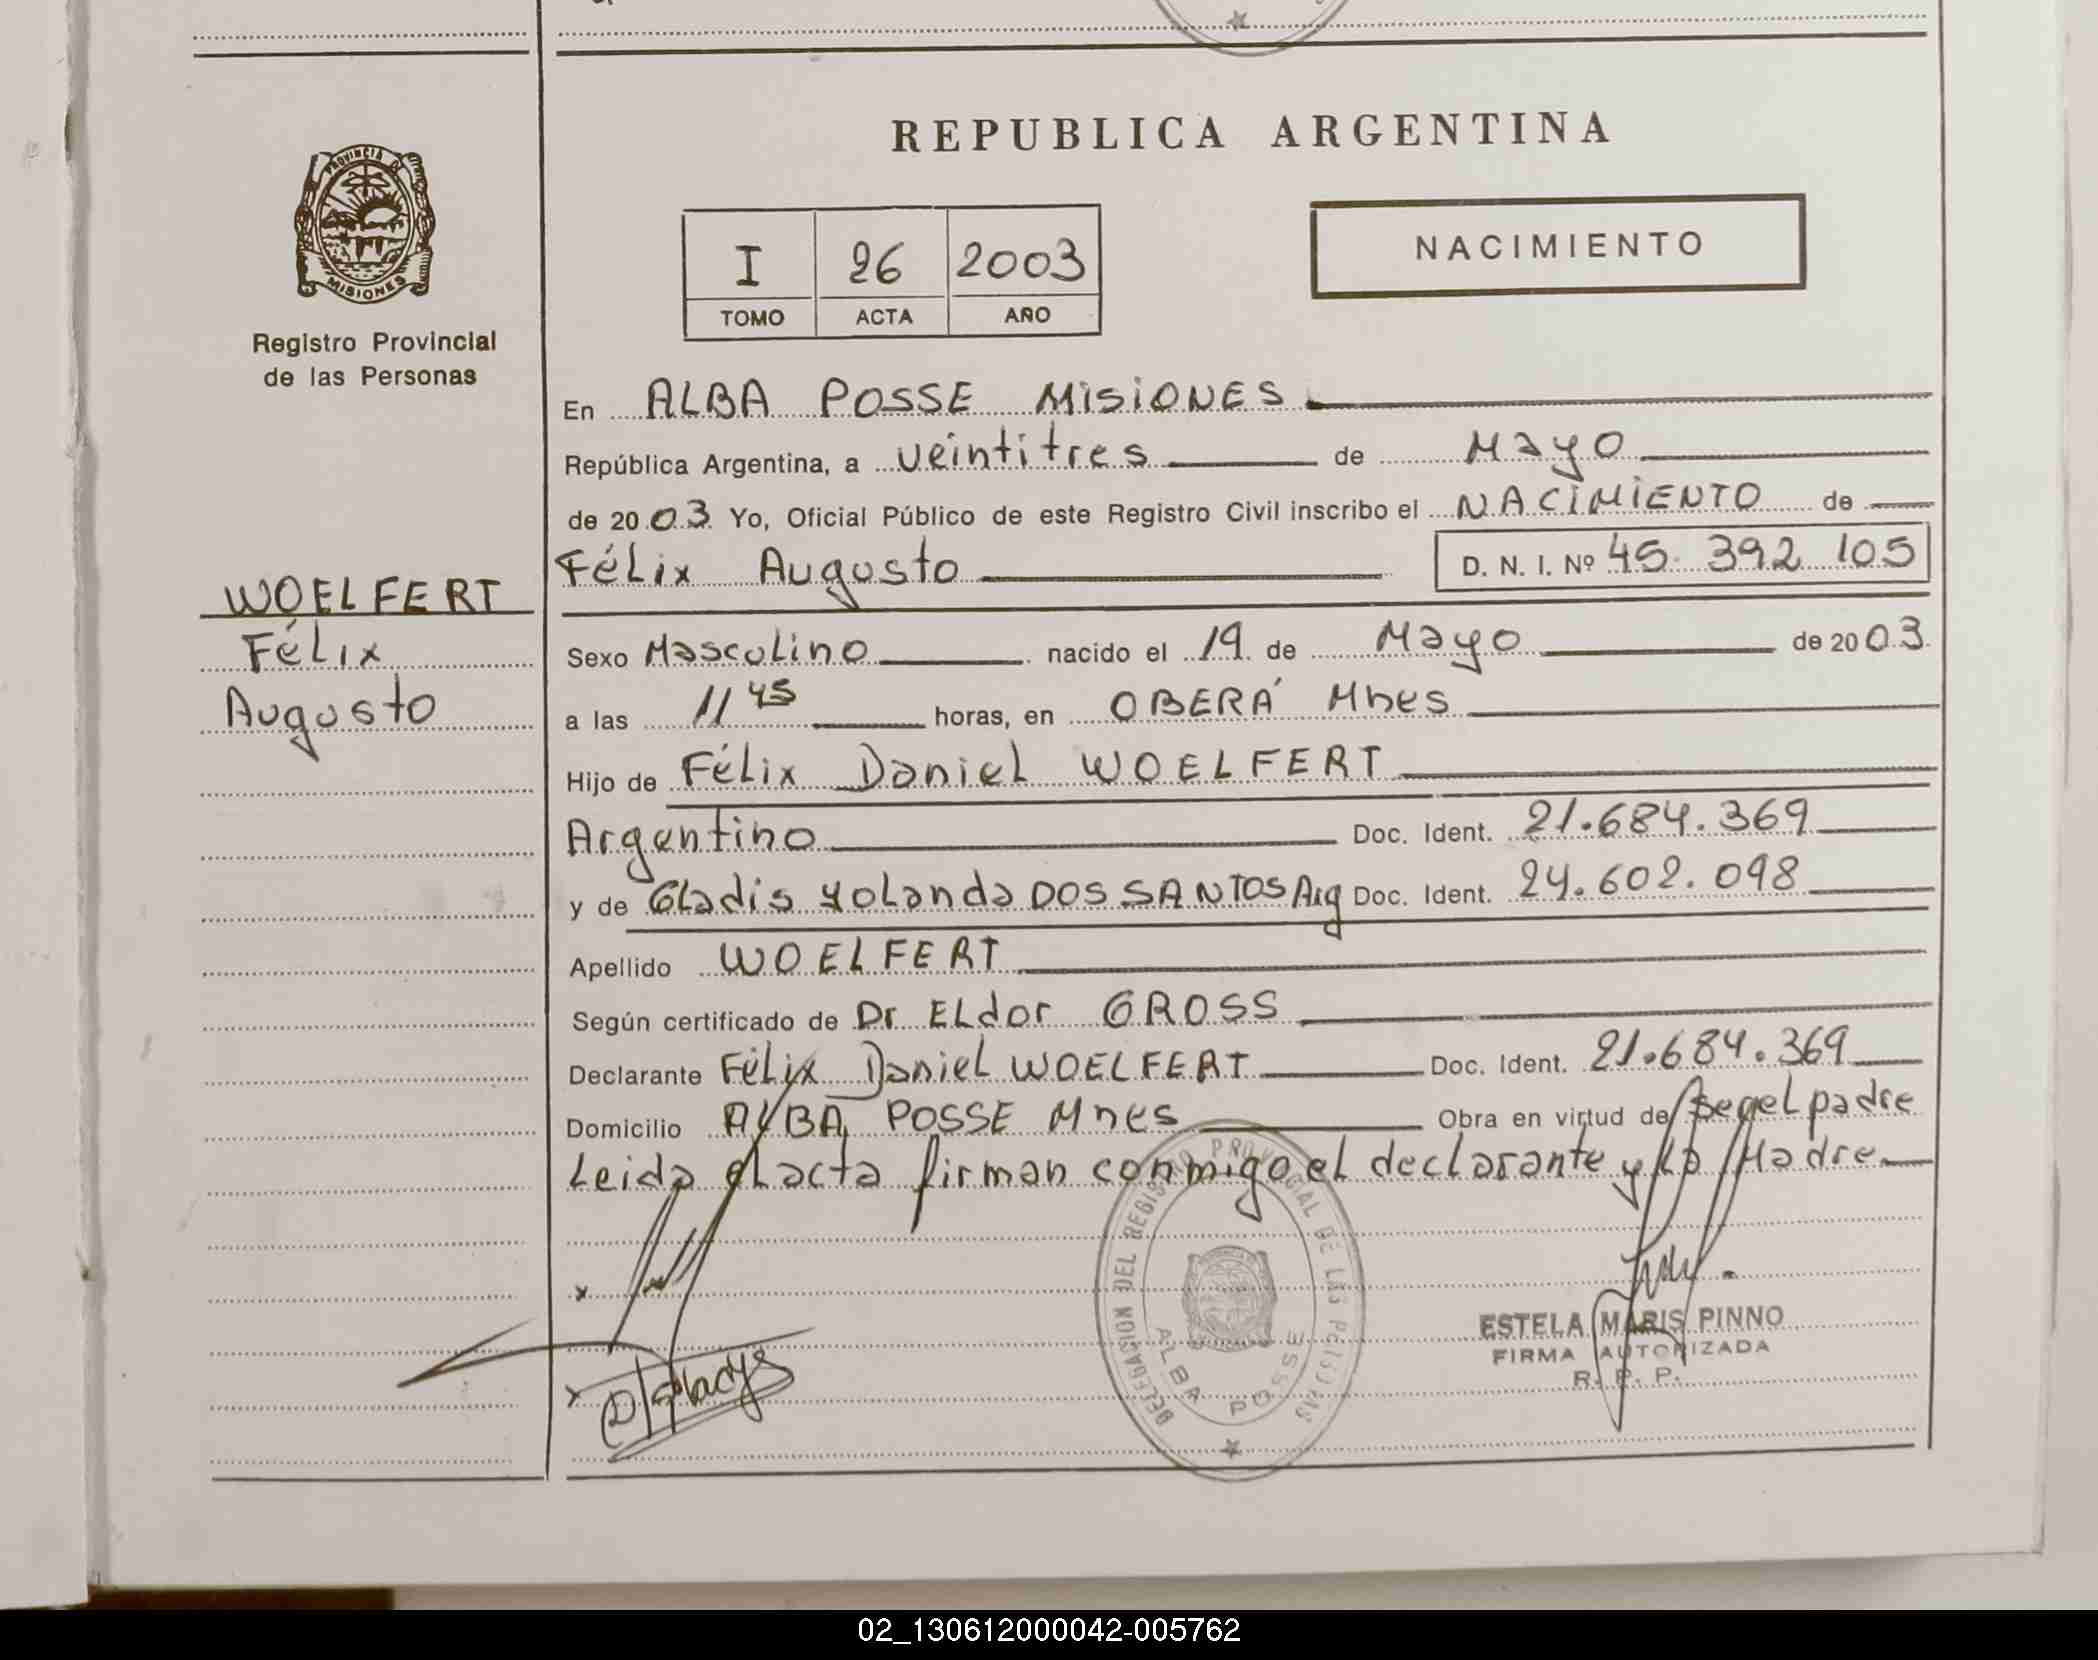 REPUBLICA ARGENTINA
PROVINCIA DE MISIONES
Registro Provincial
de las Personas
I 26 2003
TOMO ACTA AÑO
NACIMIENTO
WOELFERT
Félix
Augusto
En ALBA POSSE MISIONES
República Argentina, a veintitres de Mayo
de 2003 Yo, Oficial Público de este Registro Civil inscribo el NACIMIENTO de
Félix Augusto D. N. I. Nº 45.392.105
Sexo Masculino nacido el 19 de Mayo de 2003
a las 11 45 horas, en OBERÁ Mnes
Hijo de Félix Daniel WOELFERT
Argentino Doc. Ident. 21.684.369
y de Gladis Yolanda DOS SANTOS Arg Doc. Ident. 24.602.098
Apellido WOELFERT
Según certificado de Dr ELdor GROSS
Declarante Félix Daniel WOELFERT Doc. Ident. 21.684.369
Domicilio ALBA POSSE Mnes Obra en virtud de Ser el padre
Leida el acta firman conmigo el declarante y La Madre
DELEGACION DEL REGISTRO PROVINCIAL DE LAS PERSONAS
ALBA POSSE
x
x Gladys
ESTELA MARIS PINNO
FIRMA AUTORIZADA
R. P. P.
02_130612000042-005762